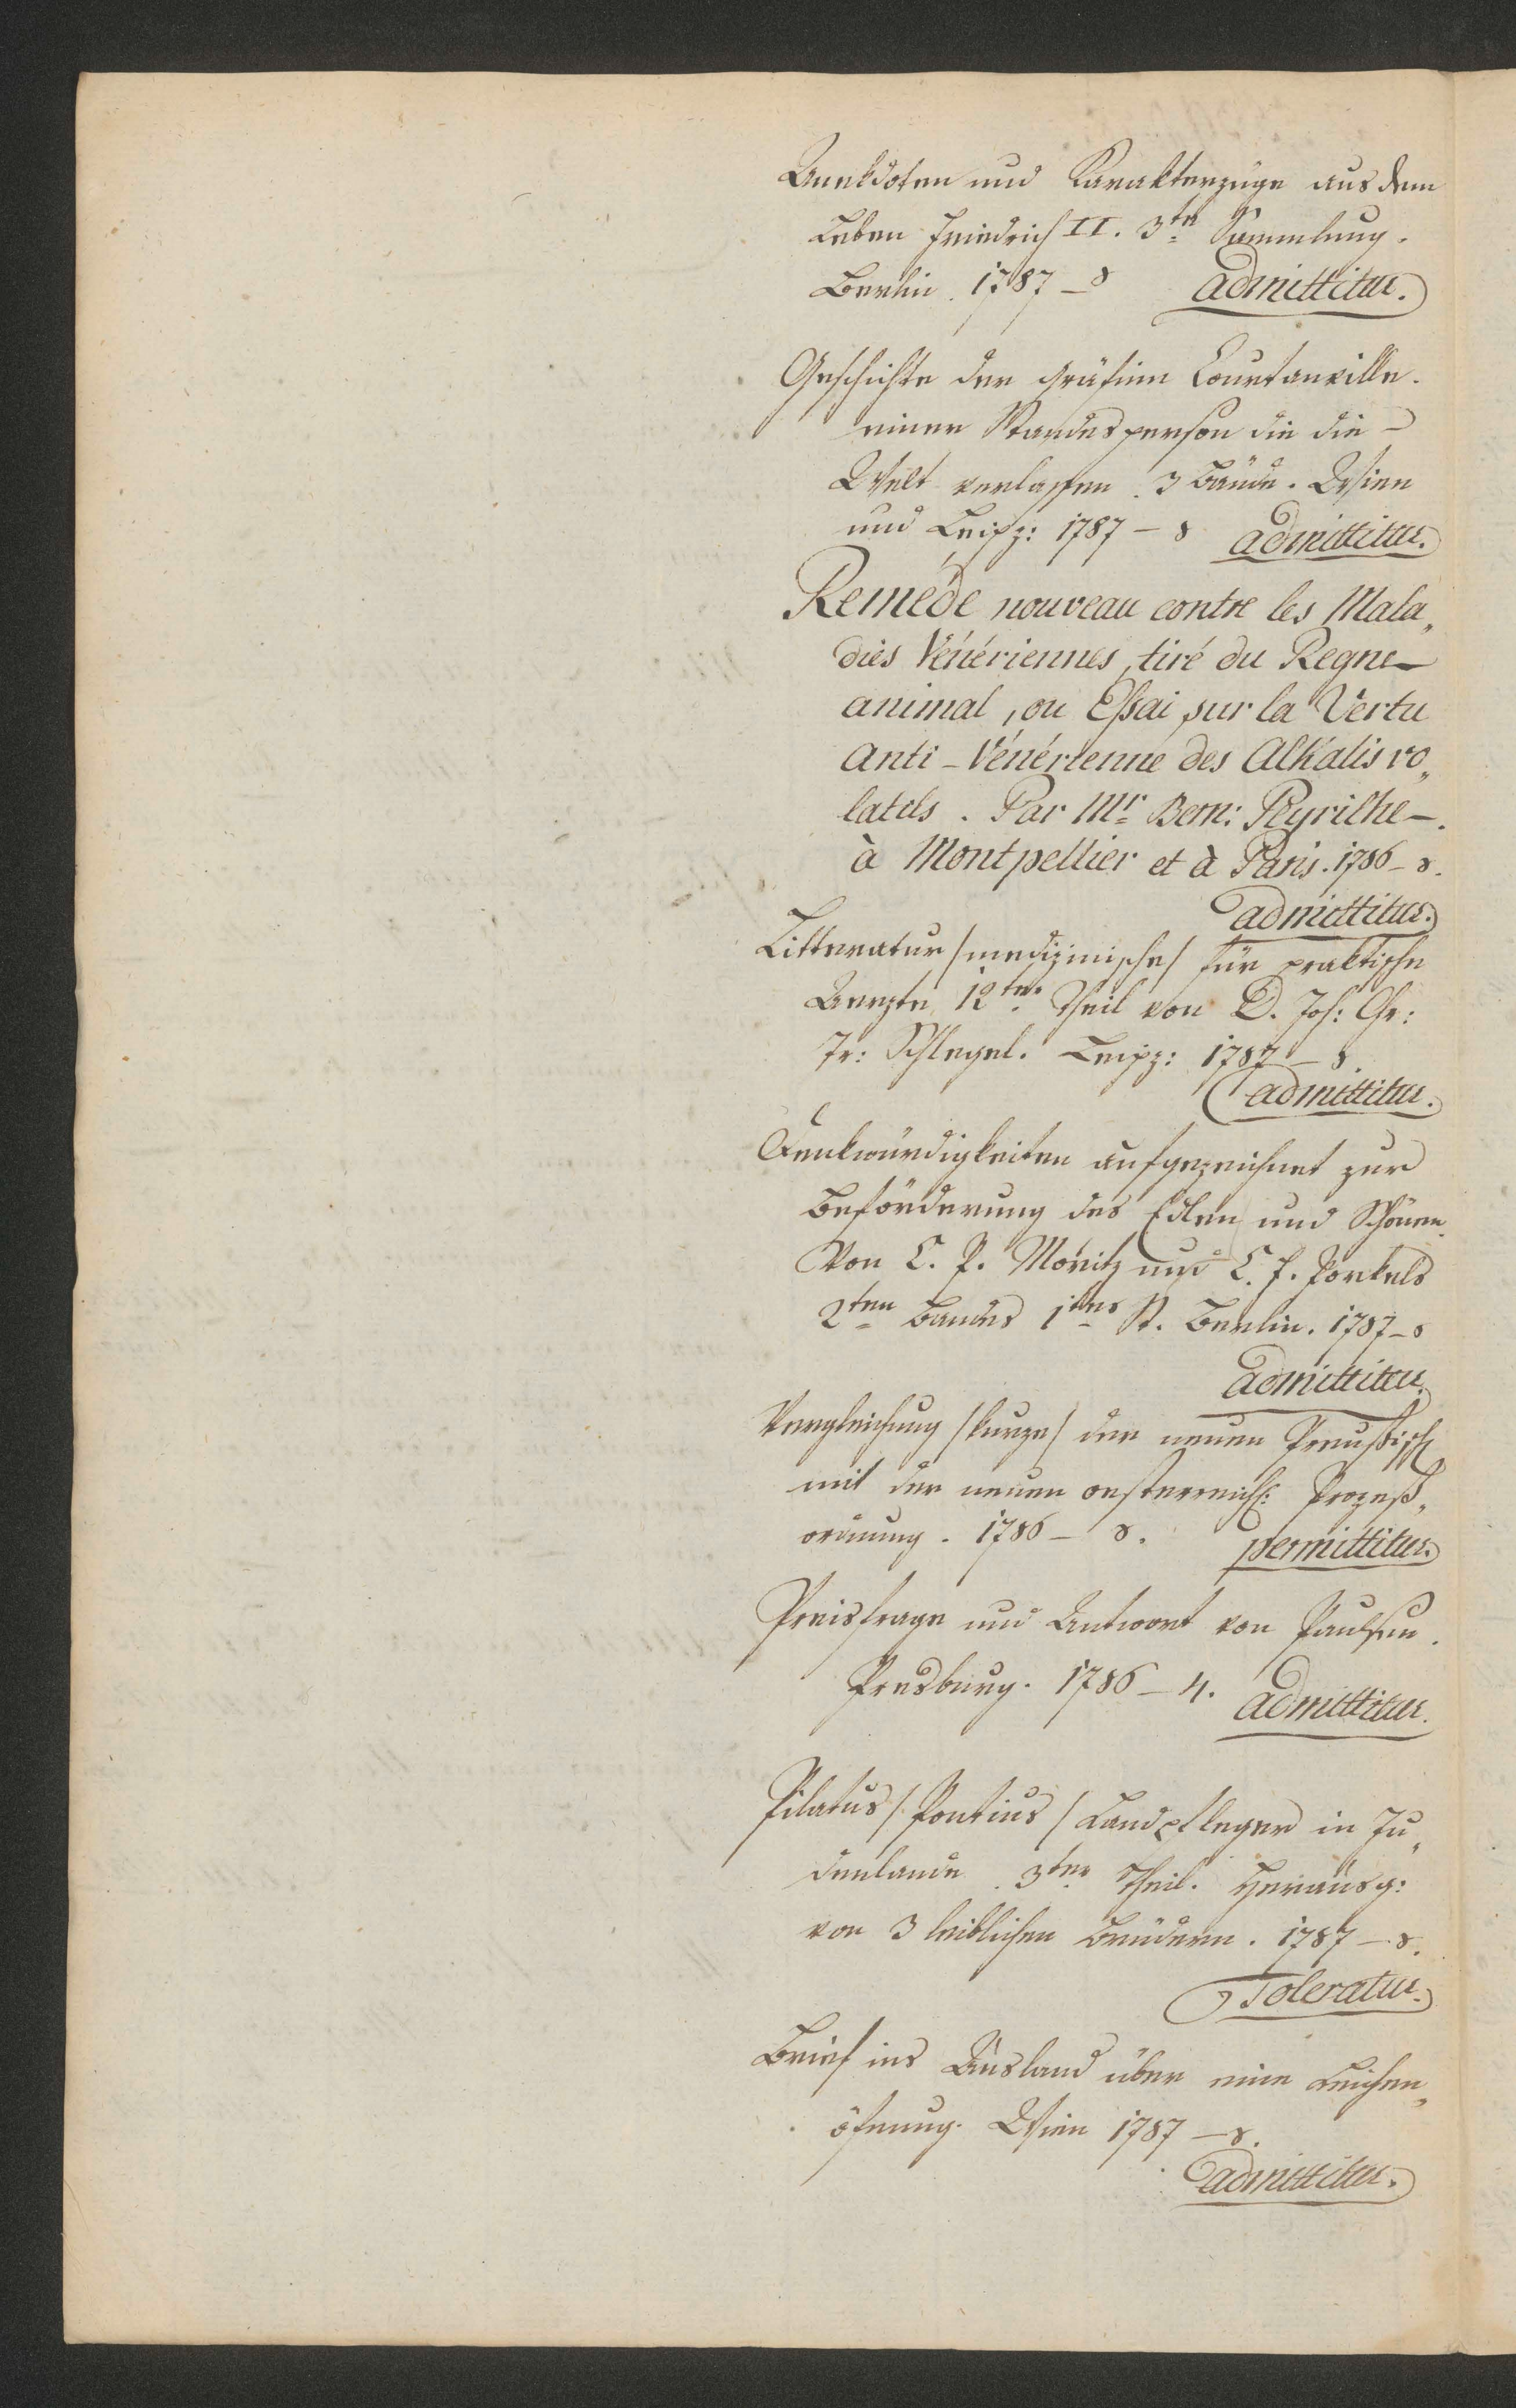 Anekdoten und Karakterzüge aus dem
Leben Friedrich II. 3te Sammlung.
Berlin. 1787 – 8 admittitur.
Geschichte der Gräfinn Courtanville.
einer Standesperson die die –
Welt verlassen. 3 Bände. Wien
und Leipz: 1787 – 8 admittitur.
Reméde nouveau contre les Mala„
dies Vénériennes, tiré du Regne –
animal, ou Essai sur la Vertu
anti-Vénérienne des Alkalis vo„
latils. Par Mr Bern: Peyrilhe –.
à Montpellier et à Paris. 1786 – 8.
admittitur.
Litteratur /medizinische/ für praktische
Aerzte 12ter Theil von D. Joh: Chr:
Tr: Schlegel. Leipz: 1787 – 8.
admittitur.
Denkwürdigkeiten aufgezeichnet zur
Beförderung des Edlen und Schönen.
Von C. P. Moritz und C. F. Pockels
2ten Bandes 1tes St. Berlin. 1787 – 8
admittitur.
Vergleichung /kurze/ der neuen Preußisch
mit der neuen oesterreich: Prozeß„
ordnung. 1786 – 8. permittitur.
Preisfrage und Antwort von Paulsen.
Presburg. 1786 – 4. admittitur.
Pilatus /Pontius/ Landpfleger in Ju„
denlande. 3ter Theil. Herausg:
von 3 leiblichen Brüdern. 1787 – 8.
Toleratur.
Brief ins Ausland über eine Leichen„
öfnung. Wien 1787 – 8.
admittitur.